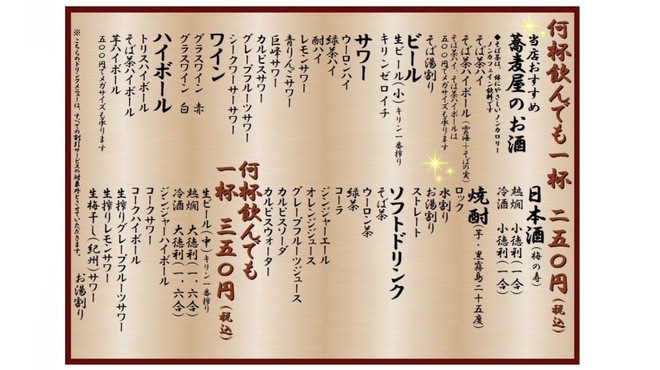 何杯飲んでも一杯 二五〇円(税込)
当店おすすめ
蕎麦屋のお酒
◆そば茶は、体にやさしいノンカロリー
ノンカフェイン飲料です
そば茶ハイ
そば茶ハイボール(雲海+そばの実)
そば茶ハイ、そば茶ハイボールは
五〇〇円でメガサイズも承ります
そば湯割り
ビール
生ビール(小)キリン一番搾り
キリンゼロイチ
サワー
ウーロンハイ
緑茶ハイ
酎ハイ
レモンサワー
青りんごサワー
巨峰サワー
カルピスサワー
グレープフルーツサワー
シークワーサーサワー
ワイン
グラスワイン 赤
グラスワイン 白
ハイボール
トリスハイボール
そば茶ハイボール
芋ハイボール
五〇〇円でメガサイズも承ります
日本酒(梅の寿)
熱燗 小徳利(一合)
冷酒 小徳利(一合)
焼酎(芋・黒霧島二十五度)
ロック
水割り
お湯割り
ストレート
ソフトドリンク
そば茶
ウーロン茶
緑茶
コーラ
ジンジャーエール
オレンジジュース
グレープフルーツジュース
カルピスソーダ
カルピスウォーター
何杯飲んでも
一杯 三五〇円(税込)
生ビール(中)キリン一番搾り
熱燗 大徳利(一、六合)
冷酒 大徳利(一、六合)
ジンジャーハイボール
コークサワー
コークハイボール
生搾りグレープフルーツサワー
生搾りレモンサワー
生梅干し(紀州)サワー お湯割り
※こちらのドリンクメニューは、すべての割引サービスの対象外とさせていただきます。